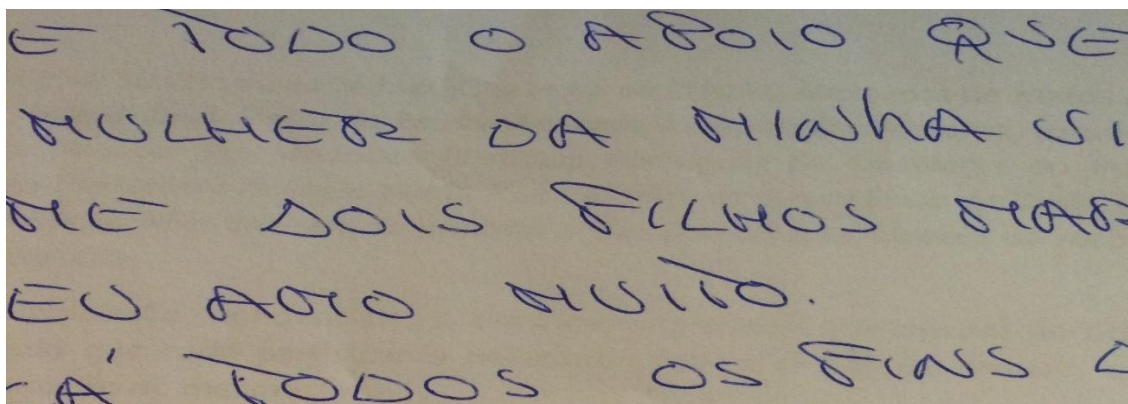 E TODO O APOIO QUE
MULHER DA MINHA VI
ME DOIS FILHOS MAR
EU AMO MUITO.
Á TODOS OS FINS D